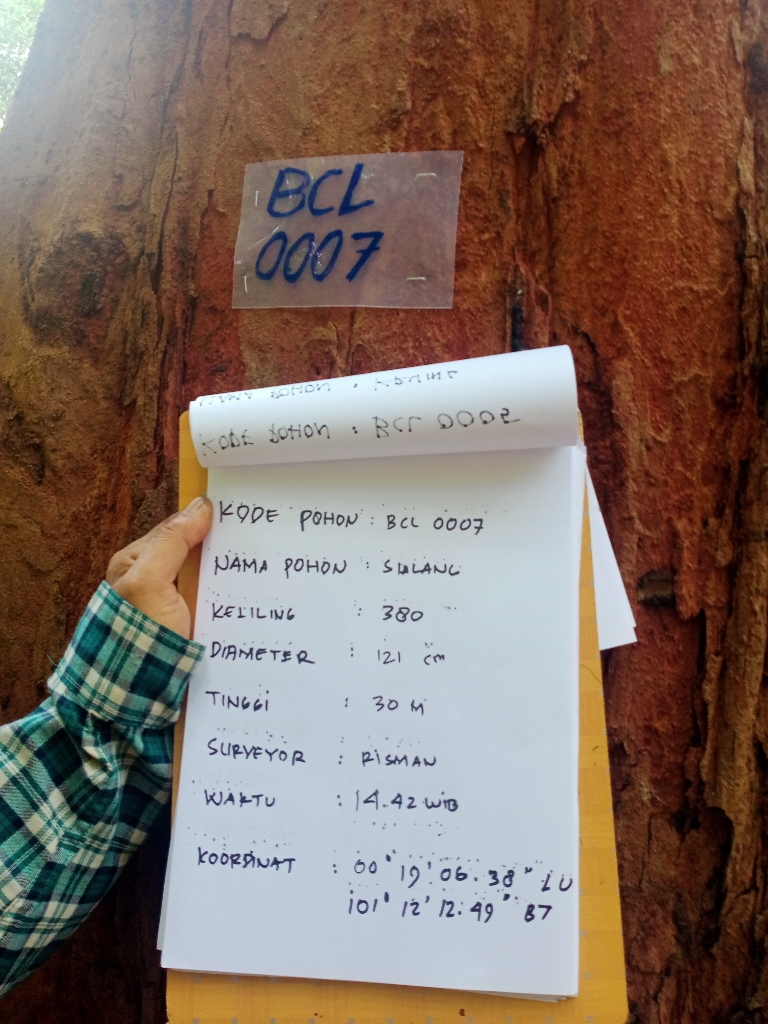 BCL
0007
KODE POHON : BCL 0002
KODE POHON : BCL 0007
NAMA POHON : SIALANG
KELILING : 380
DIAMETER : 121 cm
TINGGI : 30 M
SURVEYOR : RISMAN
WAKTU : 14.42 WIB
KOORDINAT : 00° 19' 06.38" LU
101° 12' 12.49" BT